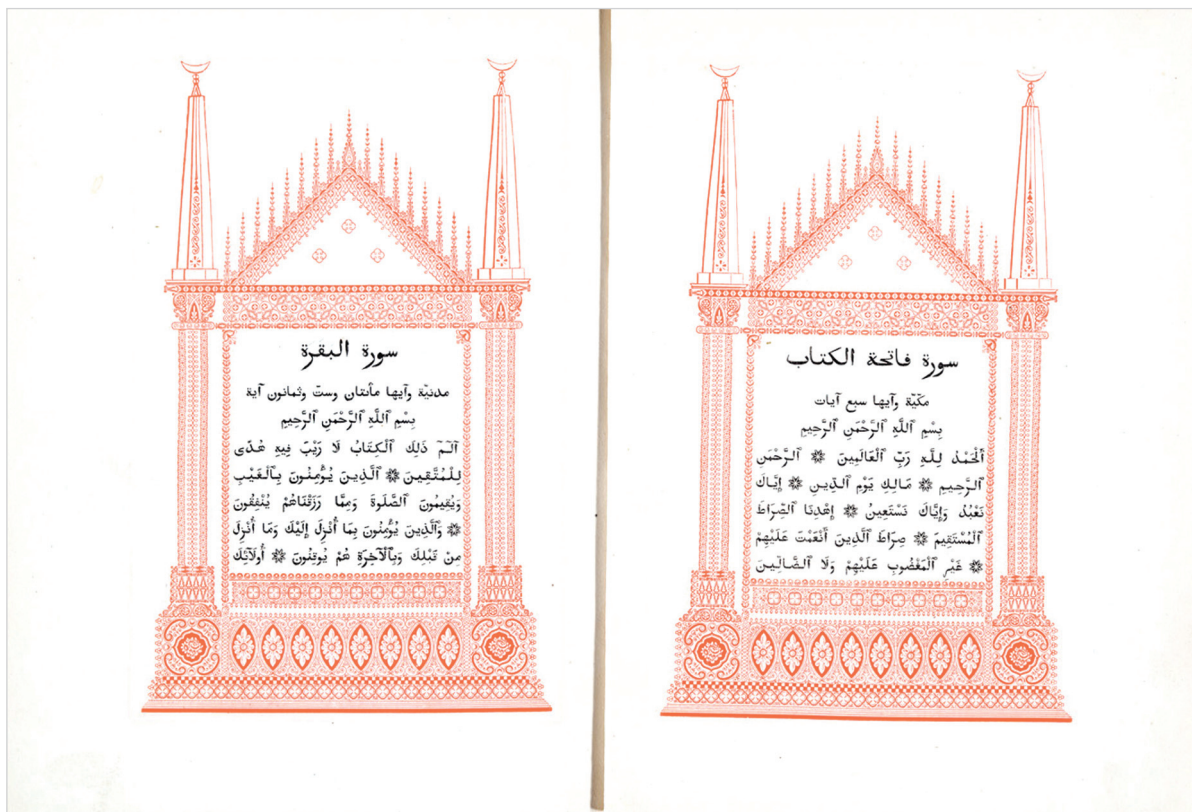 سورة فاتحة الكتاب
مكّيّة وآيها سبع آيات
بِسْمِ ٱللَّهِ ٱلرَّحْمَنِ ٱلرَّحِيمِ
ٱلْحَمْدُ لِلَّهِ رَبِّ ٱلْعَالَمِينَ ۞ ٱلرَّحْمَنِ
ٱلرَّحِيمِ ۞ مَالِكِ يَوْمِ ٱلدِّينِ ۞ إِيَّاكَ
نَعْبُدُ وَإِيَّاكَ نَسْتَعِينُ ۞ إِهْدِنَا ٱلصِّرَاطَ
ٱلْمُسْتَقِيمَ ۞ صِرَاطَ ٱلَّذِينَ أَنْعَمْتَ عَلَيْهِمْ
۞ غَيْرِ ٱلْمَغْضُوبِ عَلَيْهِمْ وَلَا ٱلضَّالِّينَ
سورة البقرة
مدنيّة وآيها مأتتان وستّ وثمانون آية
بِسْمِ ٱللَّهِ ٱلرَّحْمَنِ ٱلرَّحِيمِ
آلٓمٓ ذَلِكَ ٱلْكِتَابُ لَا رَيْبَ فِيهِ هُدًى
لِلْمُتَّقِينَ ۞ ٱلَّذِينَ يُؤْمِنُونَ بِٱلْغَيْبِ
وَيُقِيمُونَ ٱلصَّلَوةَ وَمِمَّا رَزَقْنَاهُمْ يُنْفِقُونَ
۞ وَٱلَّذِينَ يُؤْمِنُونَ بِمَا أُنْزِلَ إِلَيْكَ وَمَا أُنْزِلَ
مِنْ قَبْلِكَ وَبِٱلْآخِرَةِ هُمْ يُوقِنُونَ ۞ أُولَآئِكَ